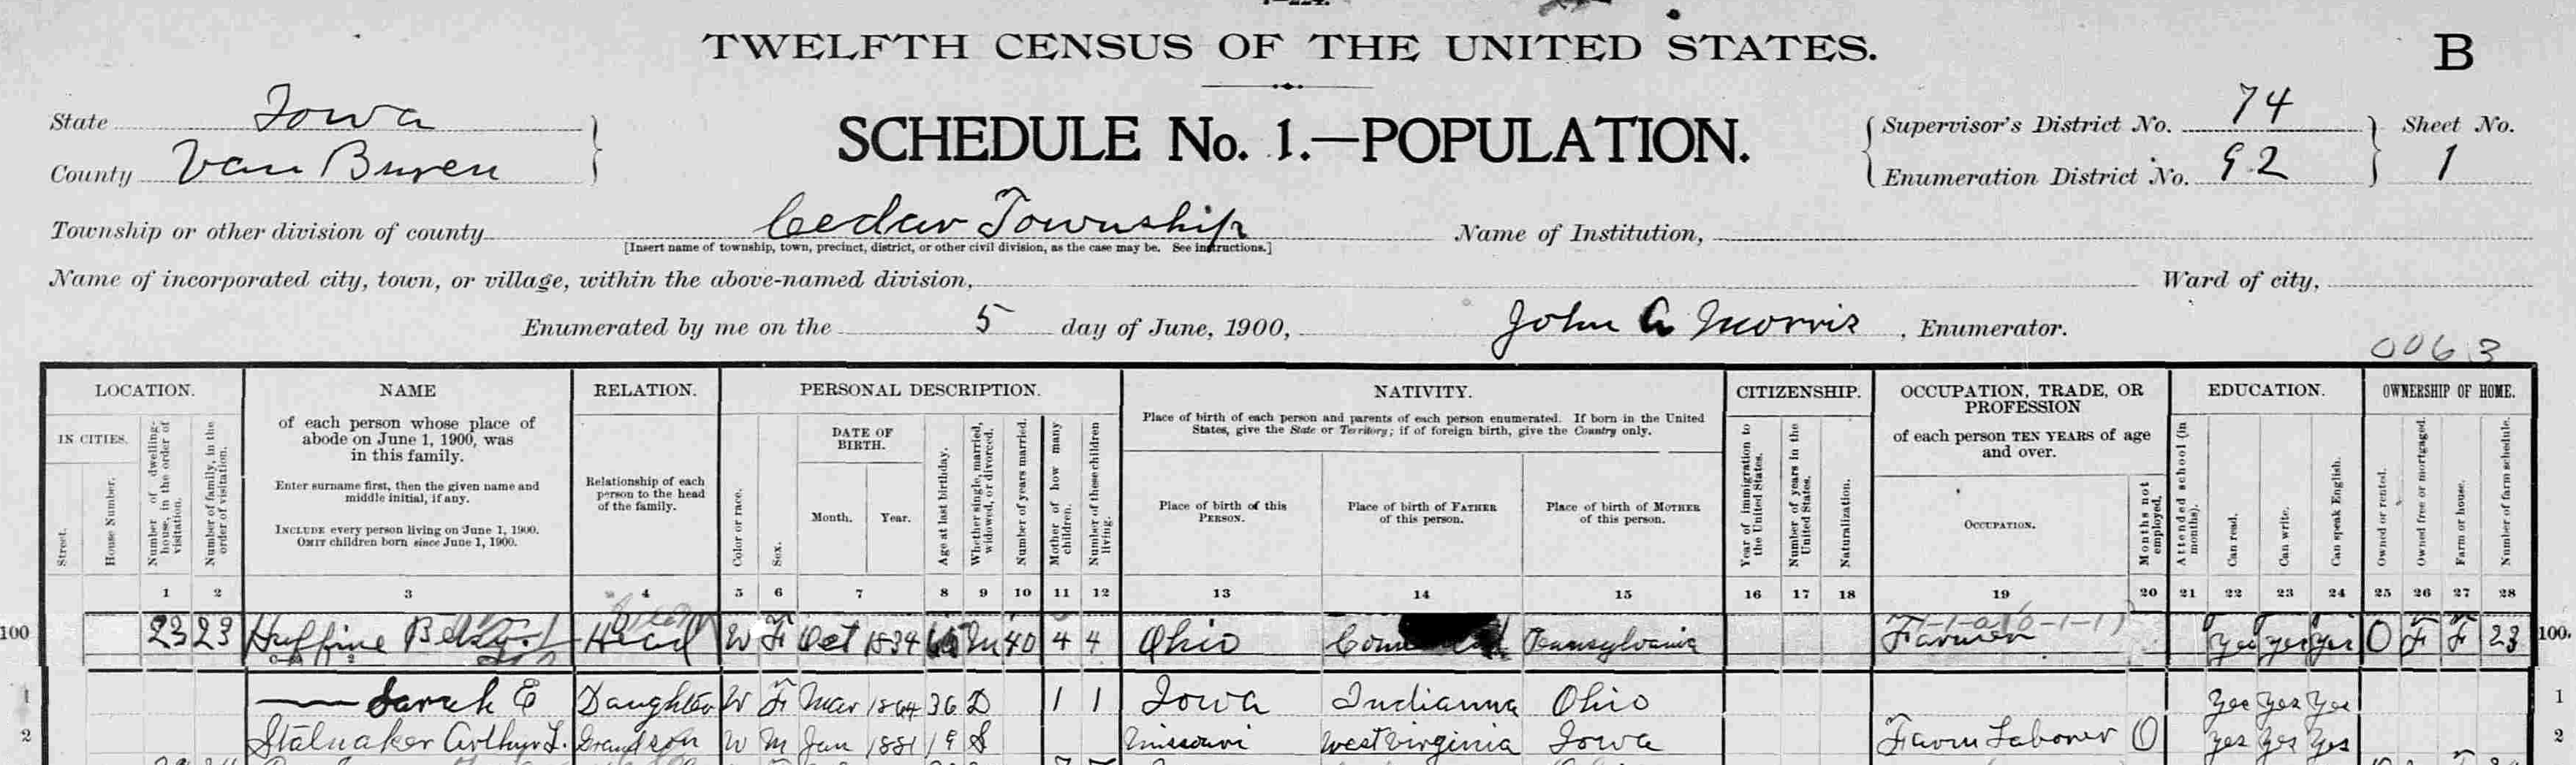 TWELFTH CENSUS OF THE UNITED STATES.
B
State Iowa
County Van Buren
SCHEDULE No. 1.—POPULATION.
Supervisor's District No. 74
Enumeration District No. 92
Sheet No.
1
Township or other division of county Cedar Township
[Insert name of township, town, precinct, district, or other civil division, as the case may be. See instructions.]
Name of Institution,
Name of incorporated city, town, or village, within the above-named division,
Ward of city,
Enumerated by me on the 5 day of June, 1900, John A Morris, Enumerator.
0063
LOCATION. NAME RELATION. PERSONAL DESCRIPTION. NATIVITY. CITIZENSHIP. OCCUPATION, TRADE, OR PROFESSION EDUCATION. OWNERSHIP OF HOME.
IN CITIES.
Street.
House Number.
Number of dwelling-house, in the order of visitation.
Number of family, in the order of visitation.
of each person whose place of abode on June 1, 1900, was in this family.
Enter surname first, then the given name and middle initial, if any.
INCLUDE every person living on June 1, 1900.
OMIT children born since June 1, 1900.
Relationship of each person to the head of the family.
Color or race.
Sex.
DATE OF BIRTH.
Month.
Year.
Age at last birthday.
Whether single, married, widowed, or divorced.
Number of years married.
Mother of how many children.
Number of these children living.
Place of birth of each person and parents of each person enumerated. If born in the United States, give the State or Territory; if of foreign birth, give the Country only.
Place of birth of this PERSON.
Place of birth of FATHER of this person.
Place of birth of MOTHER of this person.
Year of immigration to the United States.
Number of years in the United States.
Naturalization.
of each person TEN YEARS of age and over.
OCCUPATION.
Months not employed.
Attended school (in months).
Can read.
Can write.
Can speak English.
Owned or rented.
Owned free or mortgaged.
Farm or house.
Number of farm schedule.
1 2 3 4 5 6 7 8 9 10 11 12 13 14 15 16 17 18 19 20 21 22 23 24 25 26 27 28
100 23 23 Huffine Head W F Oct 1834 65 M 40 4 4 Ohio Pennsylvania Farmer yes yes yes O F F 23 100.
1 — Sarah E Daughter W F Mar 1864 36 D 1 1 Iowa Indianna Ohio yes yes yes 1
2 Stalnaker Arthur L. Grandson W M Jan 1881 19 S Missouri West Virginia Iowa Farm Laborer 0 yes yes yes 2